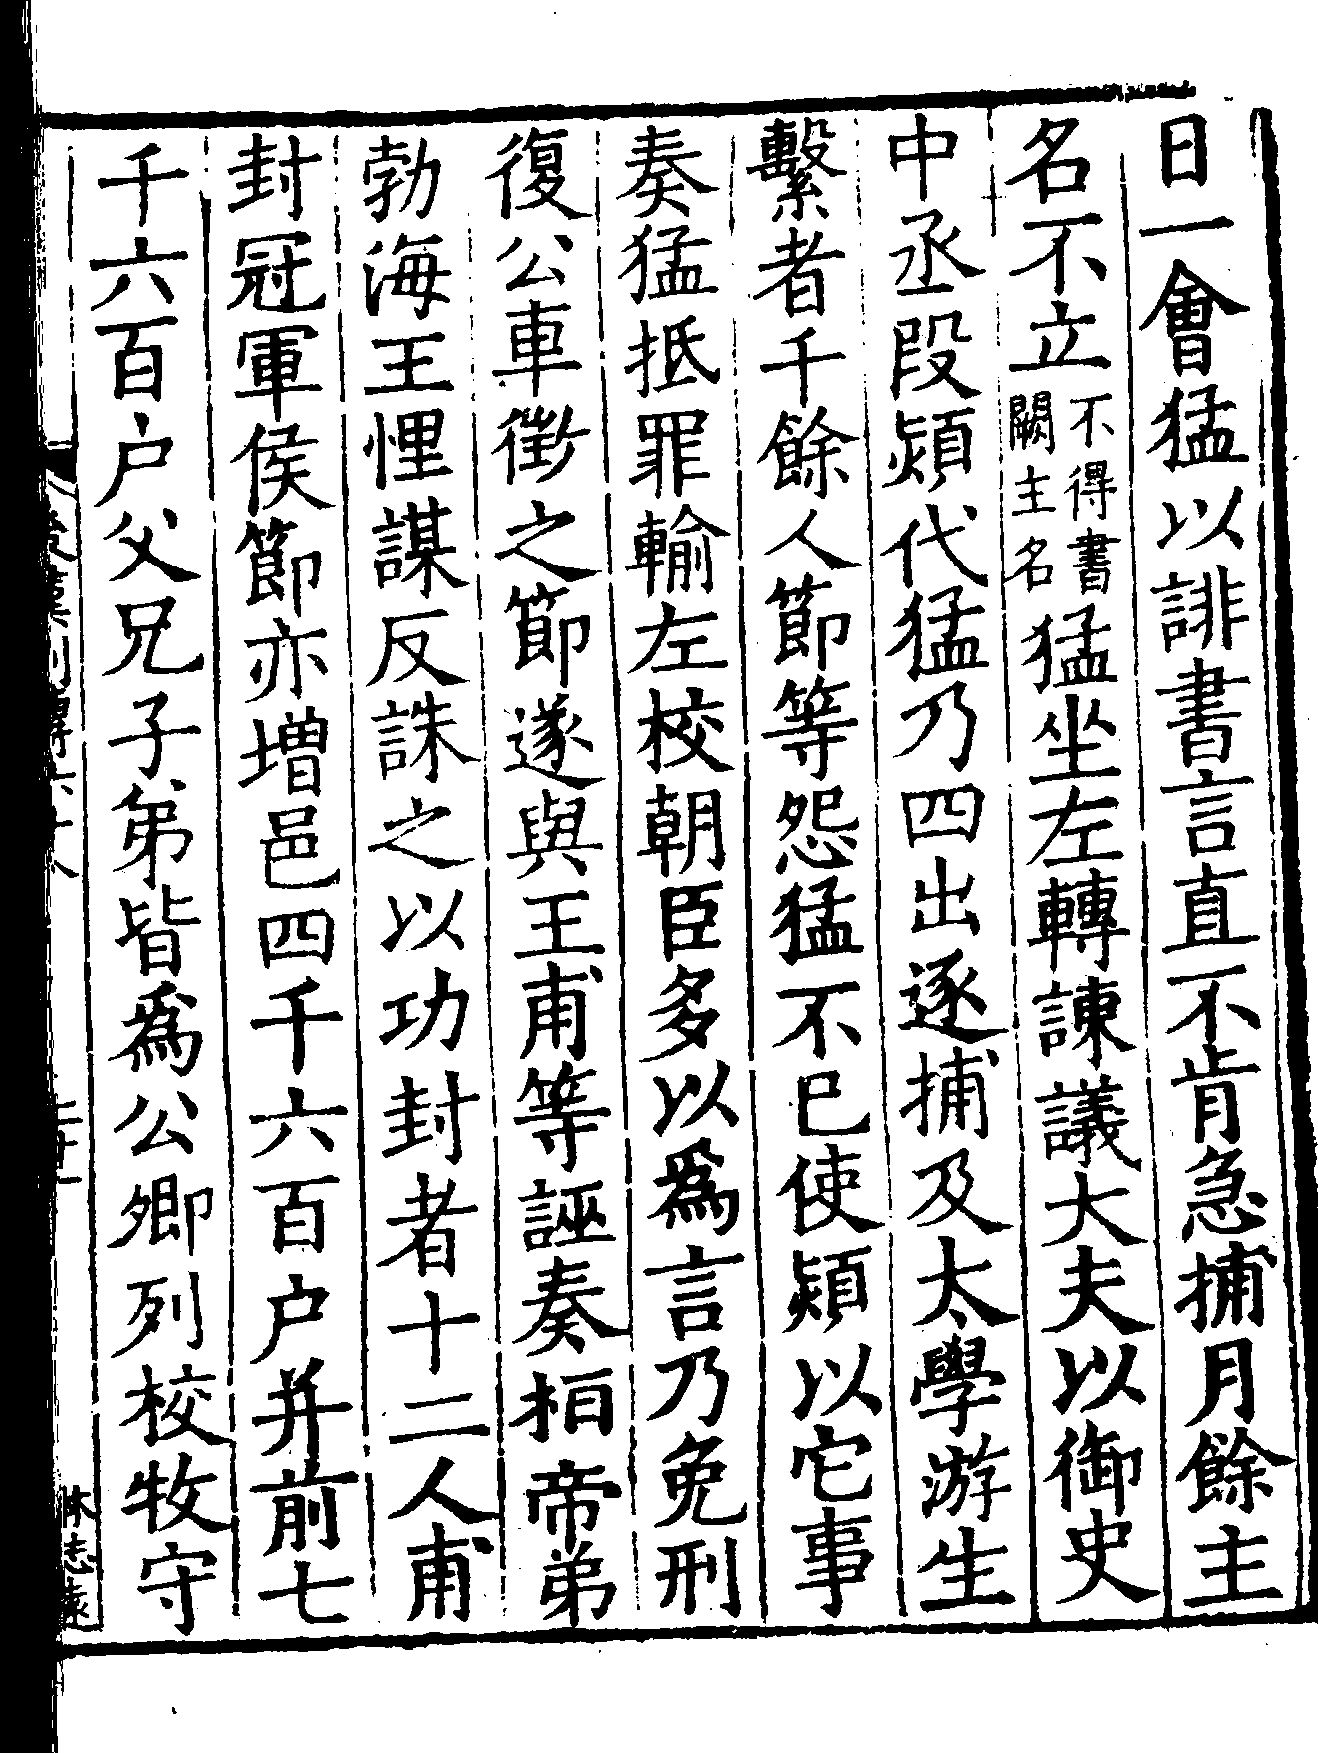 日一會猛以誹書言直不肯急捕月餘主
名不立不得書闕主名猛坐左轉諫議大夫以御史
中丞段熲代猛乃四出逐捕及太學游生
繫者千餘人節等怨猛不已使熲以它事
奏猛抵罪輸左校朝臣多以爲言乃免刑
復公車徵之節遂與王甫等誣奏桓帝弟
勃海王悝謀反誅之以功封者十二人甫
封冠軍侯節亦增邑四千六百户并前七
千六百户父兄子弟皆爲公卿列校牧守